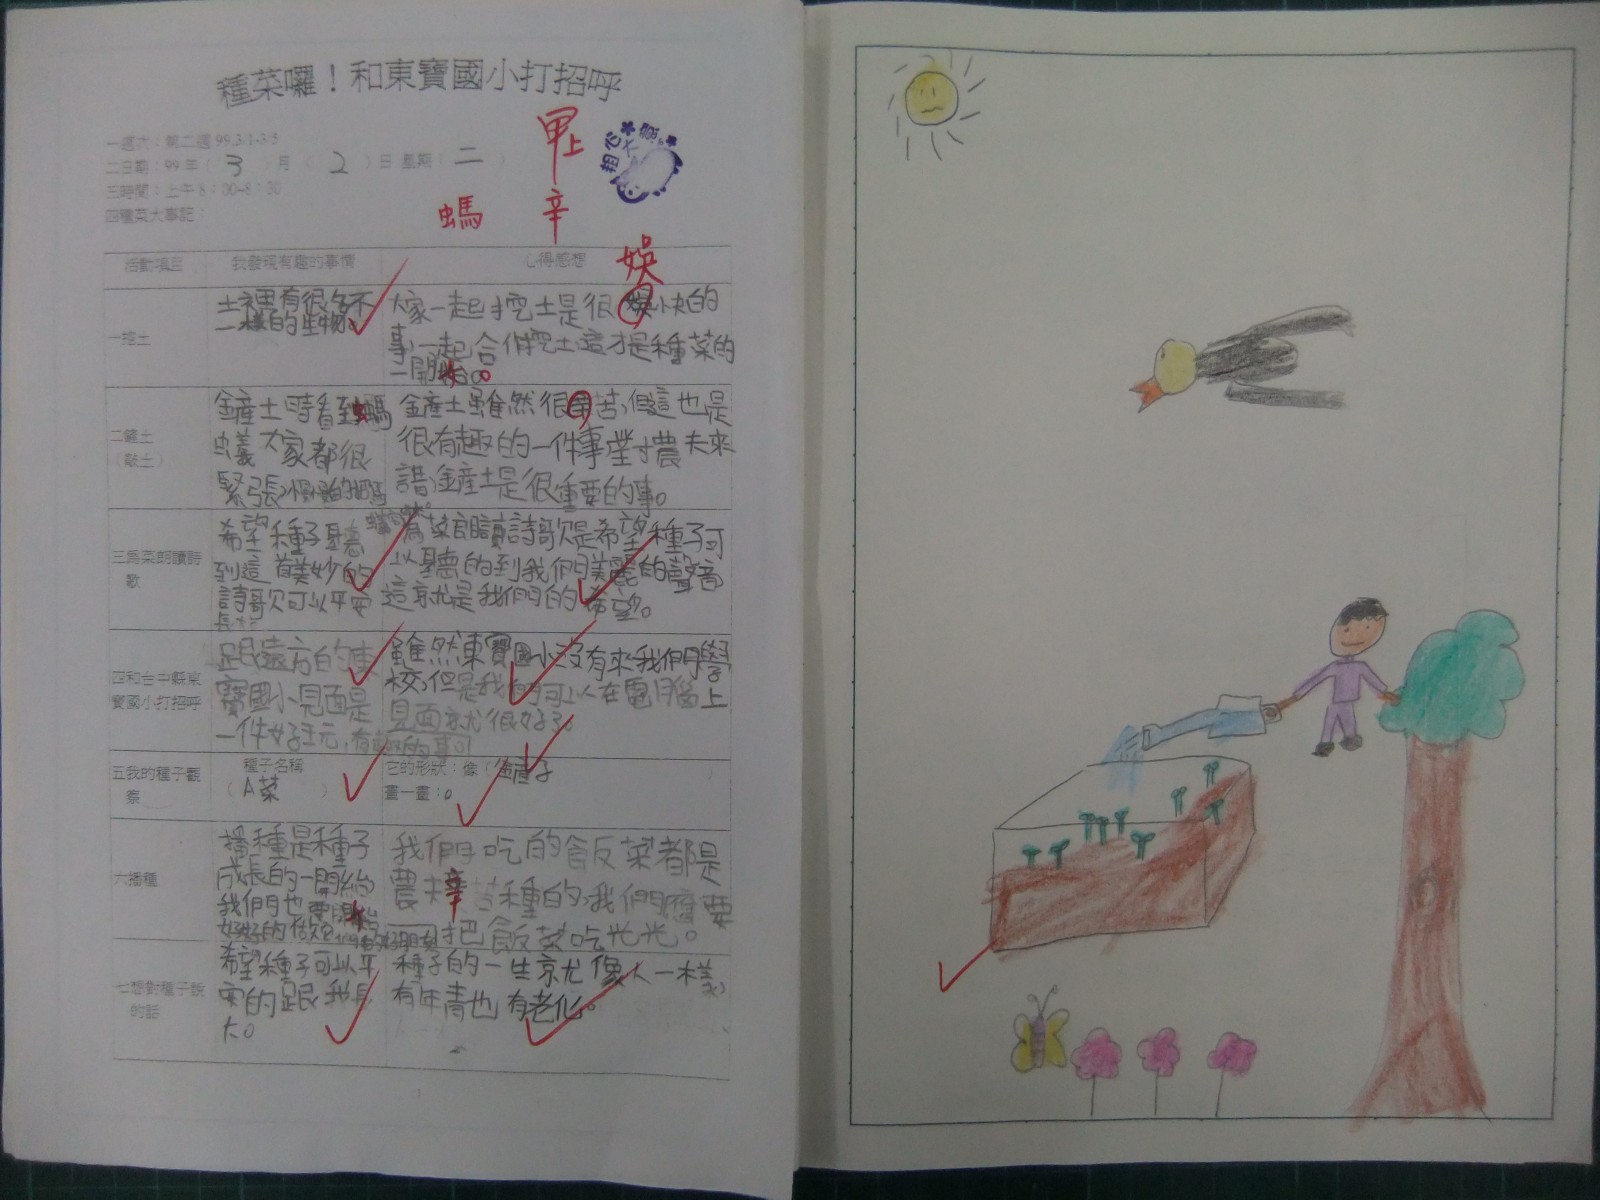 種菜囉！和東寶國小打招呼
一週次：第二週 99.3/1-3/5
二日期：99 年（ 3 ）月（ 2 ）日 星期（ 二 ）
三時間：上午 8：00-8：30
四種菜大事記：
甲上
粗心大意
螞
辛
娛
活動項目 我發現有趣的事情 心得感想
一挖土
土裡有很多不
一樣的生物。
大家一起挖土是很 快的
事,一起合 挖土,這才是種菜的
一開始。
二鏟土
（敲土）
鏟土時看到螞
蟻大家都很
緊張,慢慢的把螞
鏟土雖然很 苦,但這也是
很有趣的一件事,對農夫來
說,鏟土是很重要的事。
三為菜朗讀詩
歌
希望種子聽
到這首美妙的
詩歌可以平安
長大
為菜朗讀詩歌是希望種子可
以聽的到我們美麗的聲音
這就是我們的希望。
四和台中縣東
寶國小打招呼
跟遠方的東
寶國小見面是
一件好玩,有趣的事可
雖然東寶國小沒有來我們學
校,但是我們可以在電腦上
見面就很好了。
五我的種子觀
察
種子名稱
（A菜 ）
它的形狀：像（ 子 ）
畫一畫：
六播種
播種是種子
成長的一開始
我們也要開始
好好的做
我們吃的飯菜都是
農夫辛苦種的,我們應要
把飯菜吃光光。
七想對種子說
的話
希望種子可以平
安的跟我長
大。
種子的一生就像人一樣,
有年青也有老化。
1